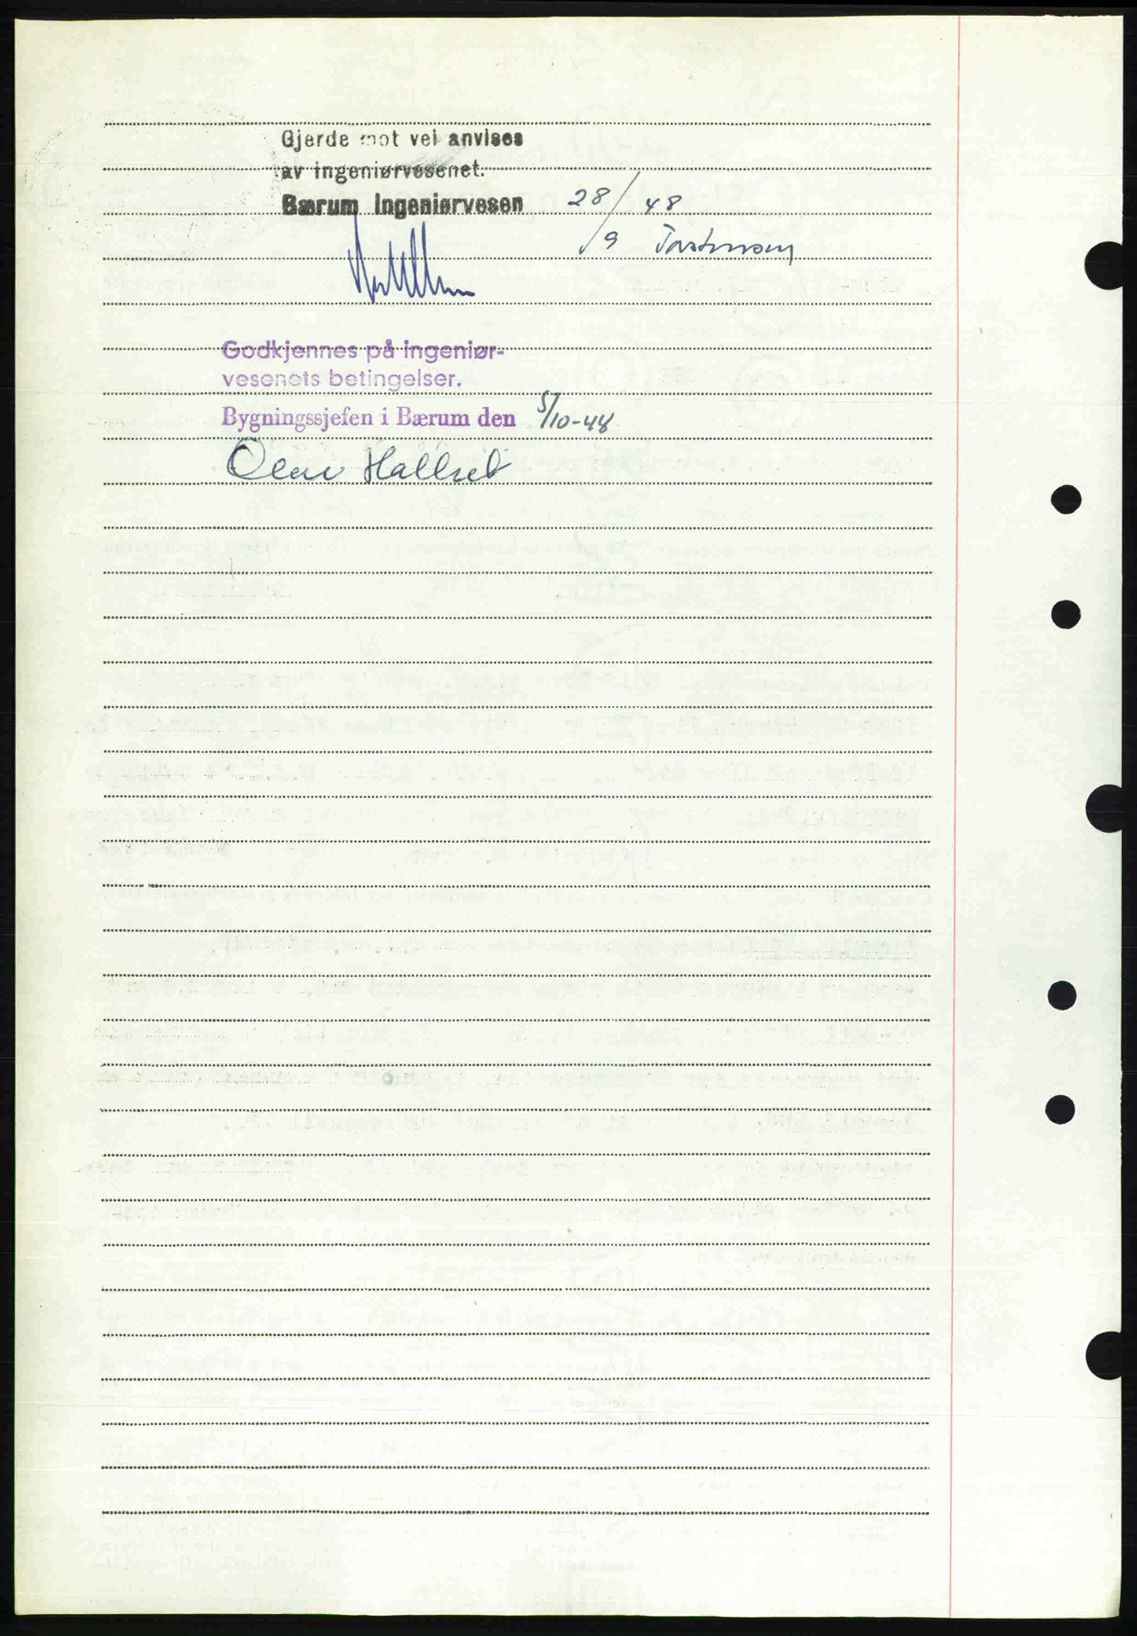 Gjerde mot vei anvises
av ingeniørvesenet.
Bærum Ingeniørvesen 28/9 48
Godkjennes på ingeniør-
vesenets betingelser.
Bygningssjefen i Bærum den 5/10-48
Olav Hallset